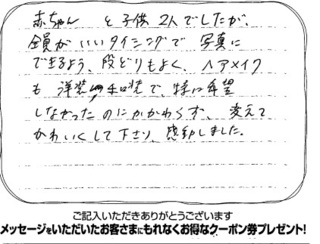 赤ちゃんと子供2人でしたが、
全員がいいタイミングで写真に
できるよう、段どりもよく、ヘアメイク
も洋装→和装で、特に希望
しなかったのにかかわらず、変えて
かわいくして下さり、感動しました。
ご記入いただきありがとうございます
メッセージをいただいたお客さまにもれなくお得なクーポン券プレゼント!